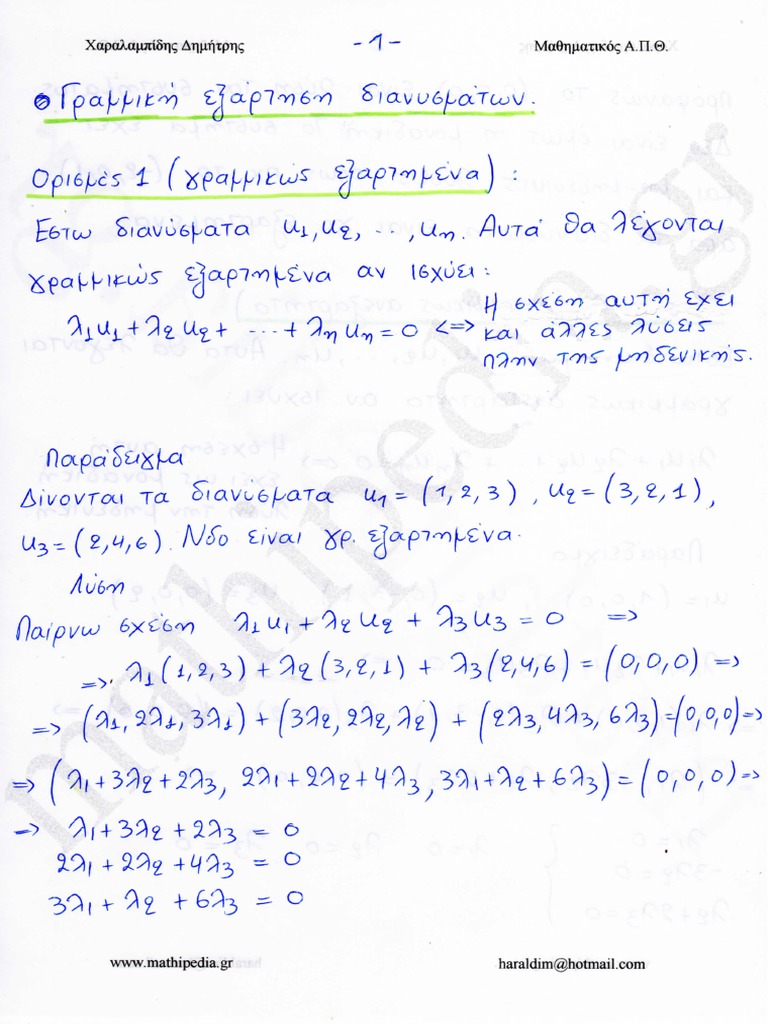 Χαραλαμπίδης Δημήτρης -1- Μαθηματικός Α.Π.Θ.
Γραμμική εξάρτηση διανυσμάτων.
Ορισμός 1 (γραμμικώς εξαρτημένα):
Εστω διανύσματα u1, u2, ..., un. Αυτά θα λέγονται
γραμμικώς εξαρτημένα αν ισχύει:
λ1u1+λ2u2+ ... +λnun=0 <=> Η σχέση αυτή έχει
και άλλες λύσεις
πλην της μηδενικής.
Παράδειγμα
Δίνονται τα διανύσματα u1=(1,2,3), u2=(3,2,1),
u3=(2,4,6). Νδο είναι γρ. εξαρτημένα.
Λύση
Παίρνω σχέση λ1u1+λ2u2+λ3u3=0 =>
=> λ1(1,2,3)+λ2(3,2,1)+λ3(2,4,6)=(0,0,0) =>
=> (λ1,2λ1,3λ1)+(3λ2,2λ2,λ2)+(2λ3,4λ3,6λ3)=(0,0,0) =>
=> (λ1+3λ2+2λ3, 2λ1+2λ2+4λ3, 3λ1+λ2+6λ3)=(0,0,0) =>
=> λ1+3λ2+2λ3=0
2λ1+2λ2+4λ3=0
3λ1+λ2+6λ3=0
mathipedia.gr
www.mathipedia.gr haraldim@hotmail.com